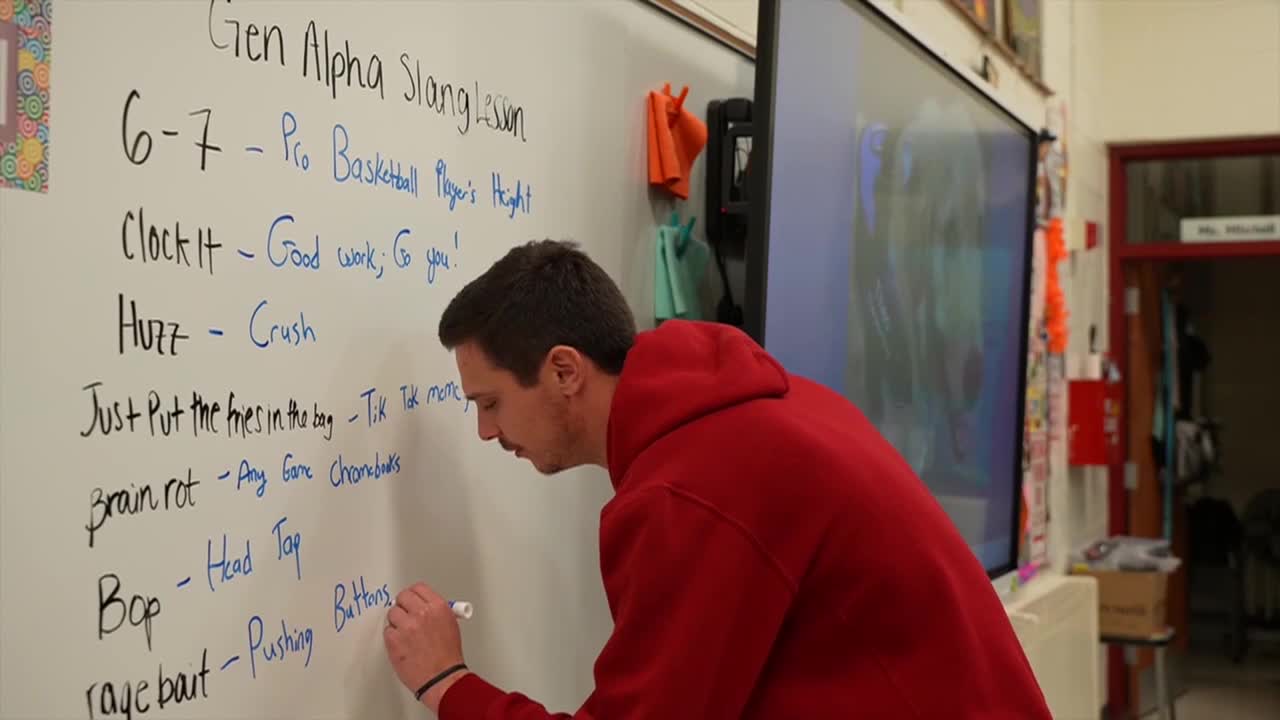 Gen Alpha Slang Lesson
6-7 - Pro Basketball Player's Height
Clock It - Good work; Go you!
Huzz - Crush
Just Put the fries in the bag - Tik Tok meme,
Brain rot - Any Game Chromebooks
Bop - Head Tap
rage bait - Pushing Buttons.
Ms. Mitchell